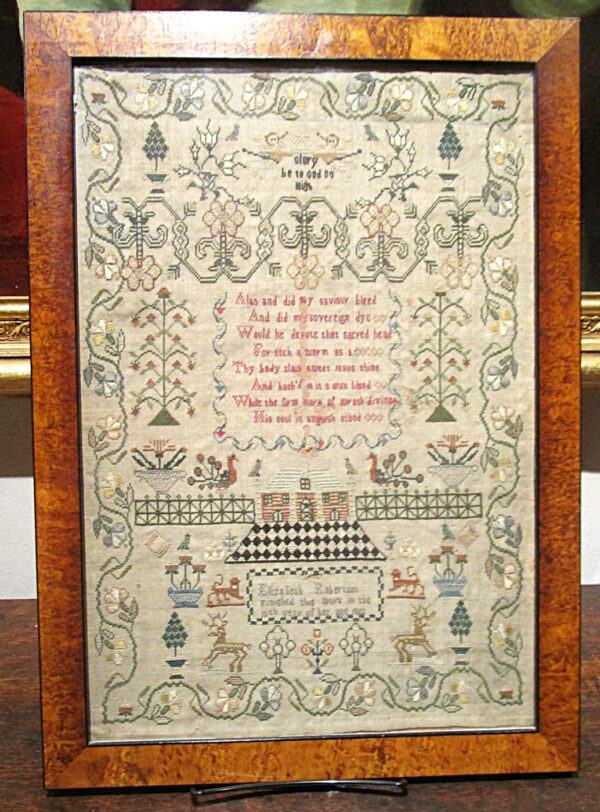 Glory
be to God on
High
Alas and did my saviour bleed
And did my sovereign dye
Would he devote that sacred head
For such a worm as I
Thy body slain sweet Jesus thine
And bath'd in its own blood
While the firm mark of wrath divine
His soul in anguish stood
Elizabeth Robertson
Finished this work in the
year of her age